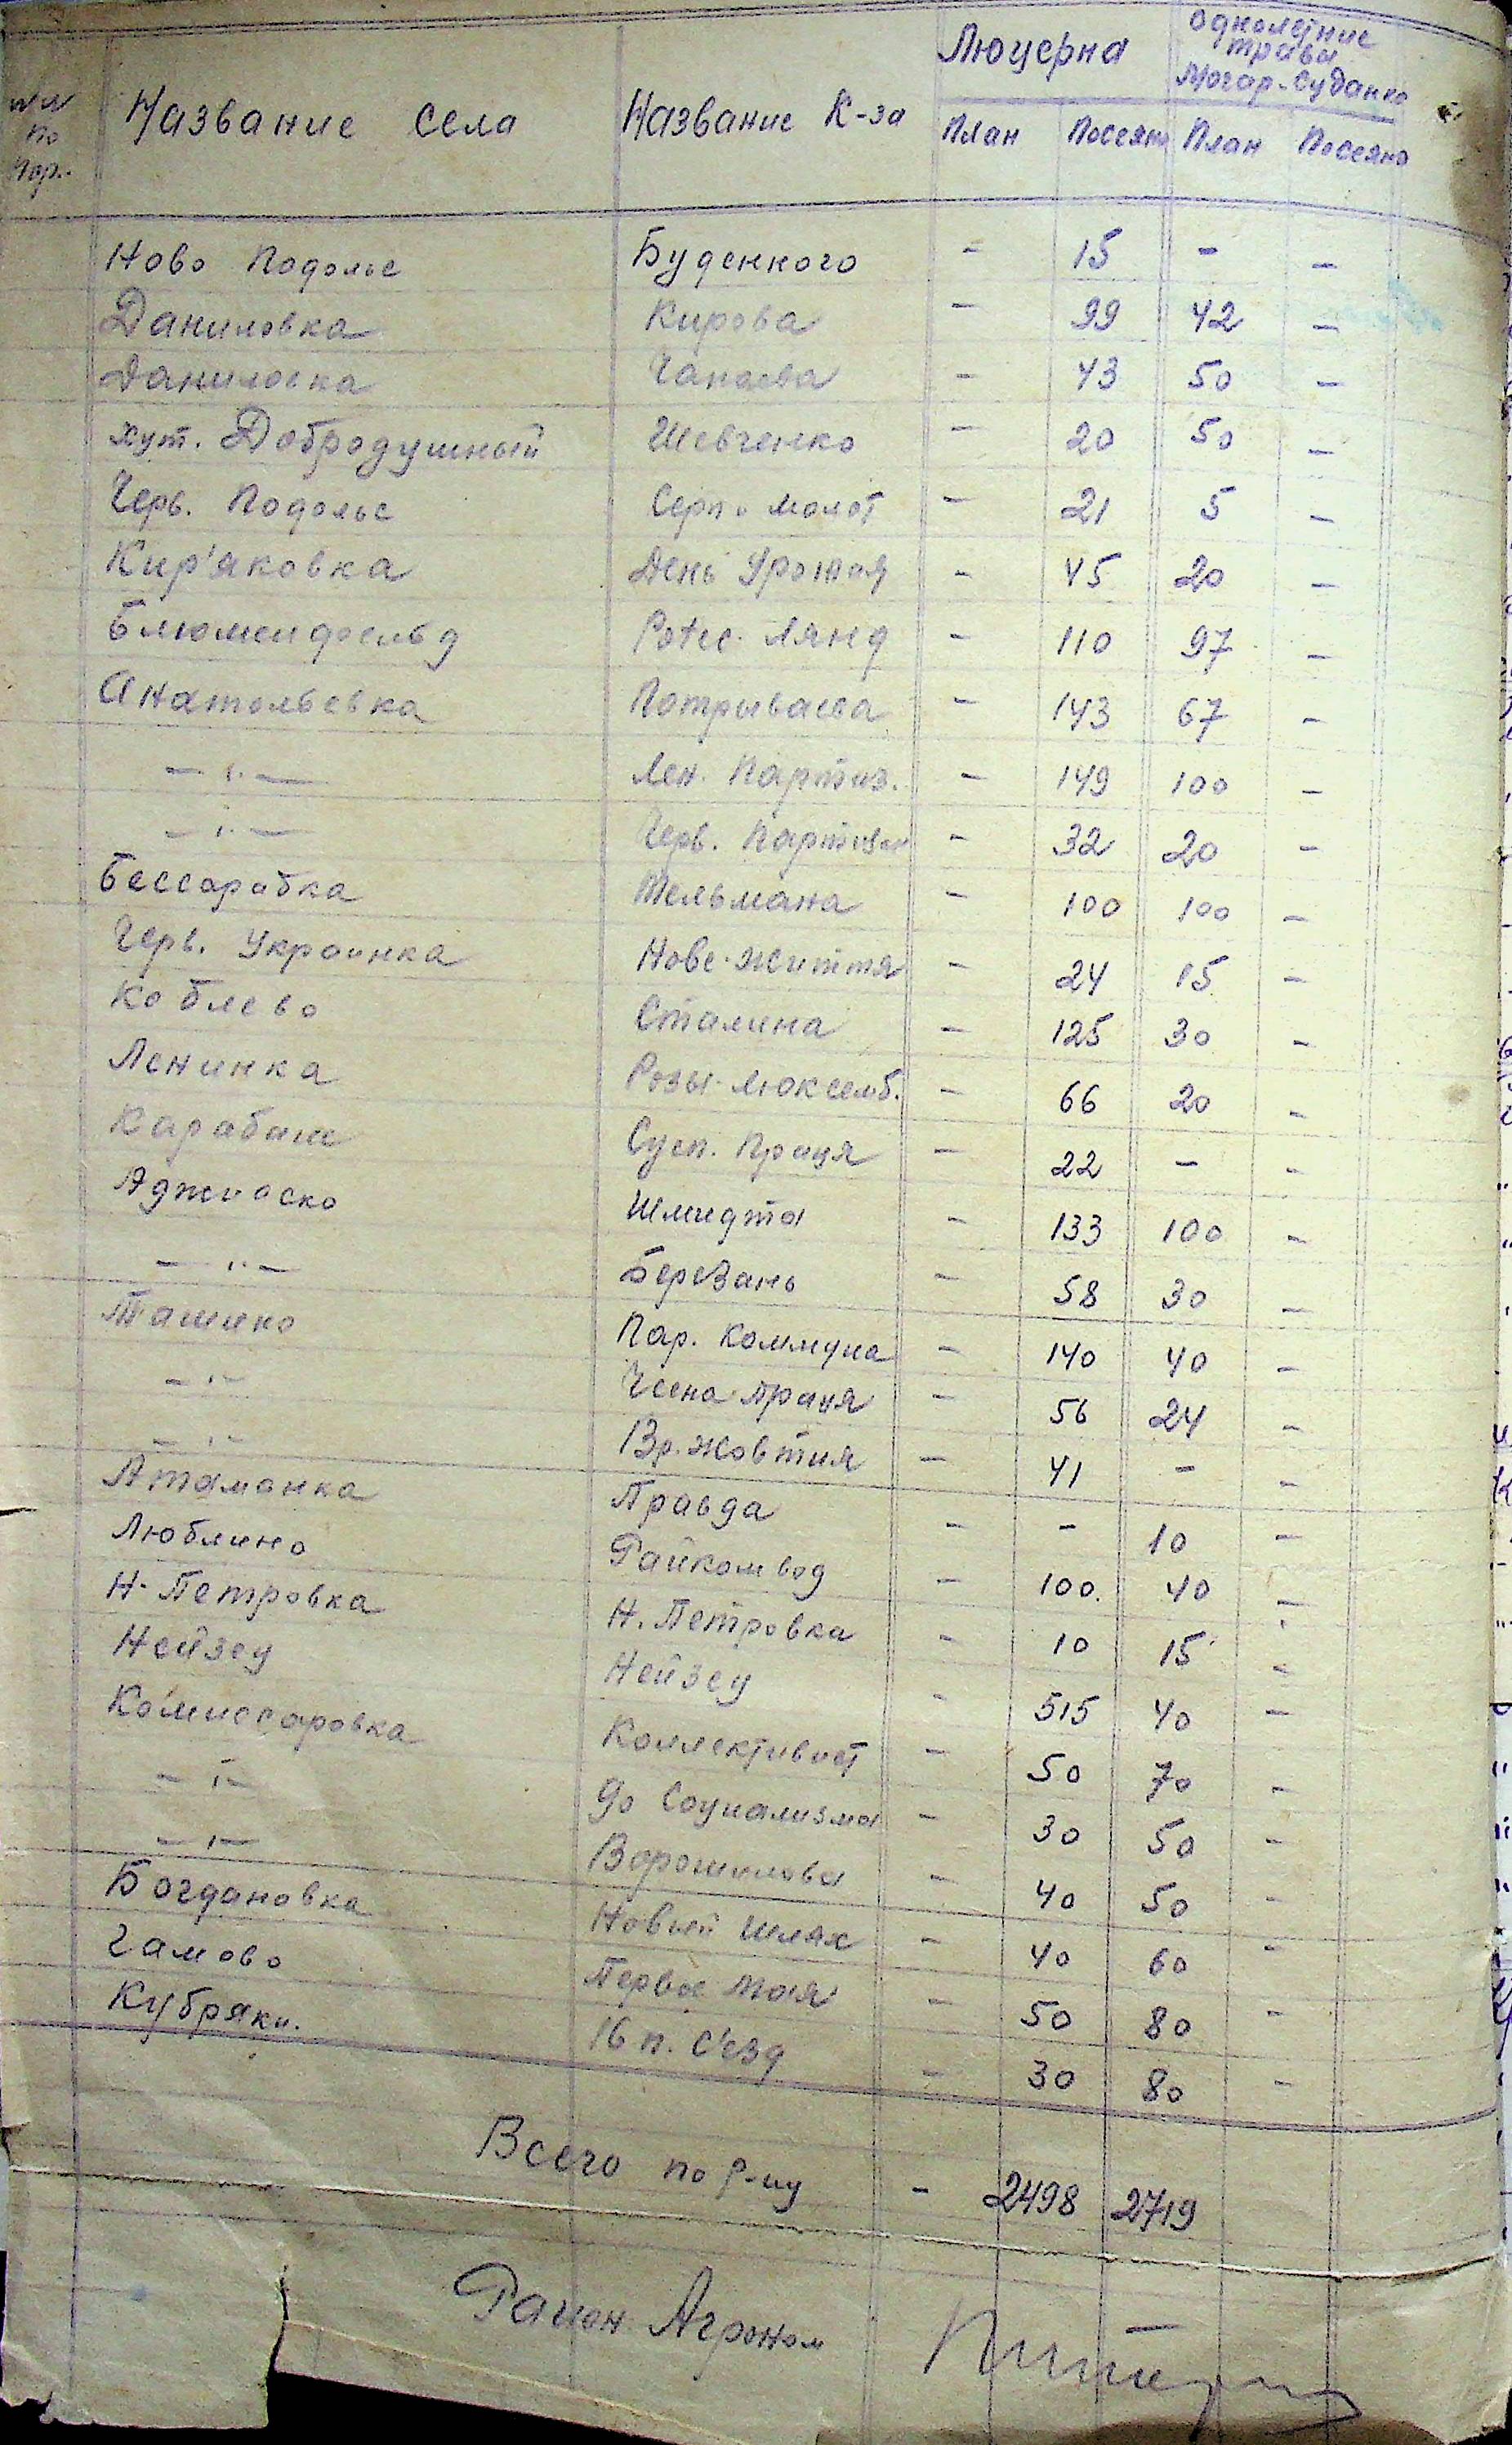 №№ по пор. Название села Название К-за Люцерна Однолетние трави Могар-Суданка
План Посеяно План Посеяно
Ново Подолье Буденкого - 15 - -
Даниловка Кирова - 99 42 -
Даниловка Чапаева - 43 50 -
хут. Добродушный Шевченко - 20 50 -
Черв. Подолье Серп и молот - 21 5 -
Кир'яковка День Урожая - 45 20 -
Блюменфельд Ротес-Лянд - 110 97 -
Анатольевка Потрываева - 143 67 -
-"- Лен. Партиз. - 149 100 -
-"- Черв. Партизан - 32 20 -
Бессарабка Тельмана - 100 100 -
Черв. Украинка Нове-Життя - 24 15 -
Коблево Сталина - 125 30 -
Ленинка Розы-Люксемб. - 66 20 -
Карабаше Сусп. Праця - 22 - -
Аджиаско Шмидта - 133 100 -
-"- Березань - 58 30 -
Ташино Пар. Коммуна - 140 40 -
-"- Чесна праця - 56 24 -
-"- 13 р. Жовтня - 41 - -
Атаманка Правда - - 10 -
Люблино Райкомвод - 100. 40 -
Н-Петровка Н. Петровка - 10 15 -
Нейзец Нейзец - 515 40 -
Комиссаровка Коллективист - 50 70 -
-"- до Социализма - 30 50 -
-"- Ворошилова - 40 50 -
Богдановка Новый шлях - 40 60 -
Гамово Первое Мая - 50 80 -
Кубряки. 16 п. С'езд - 30 80 -
Всего по р-ну - 2498 2719
Район Агроном